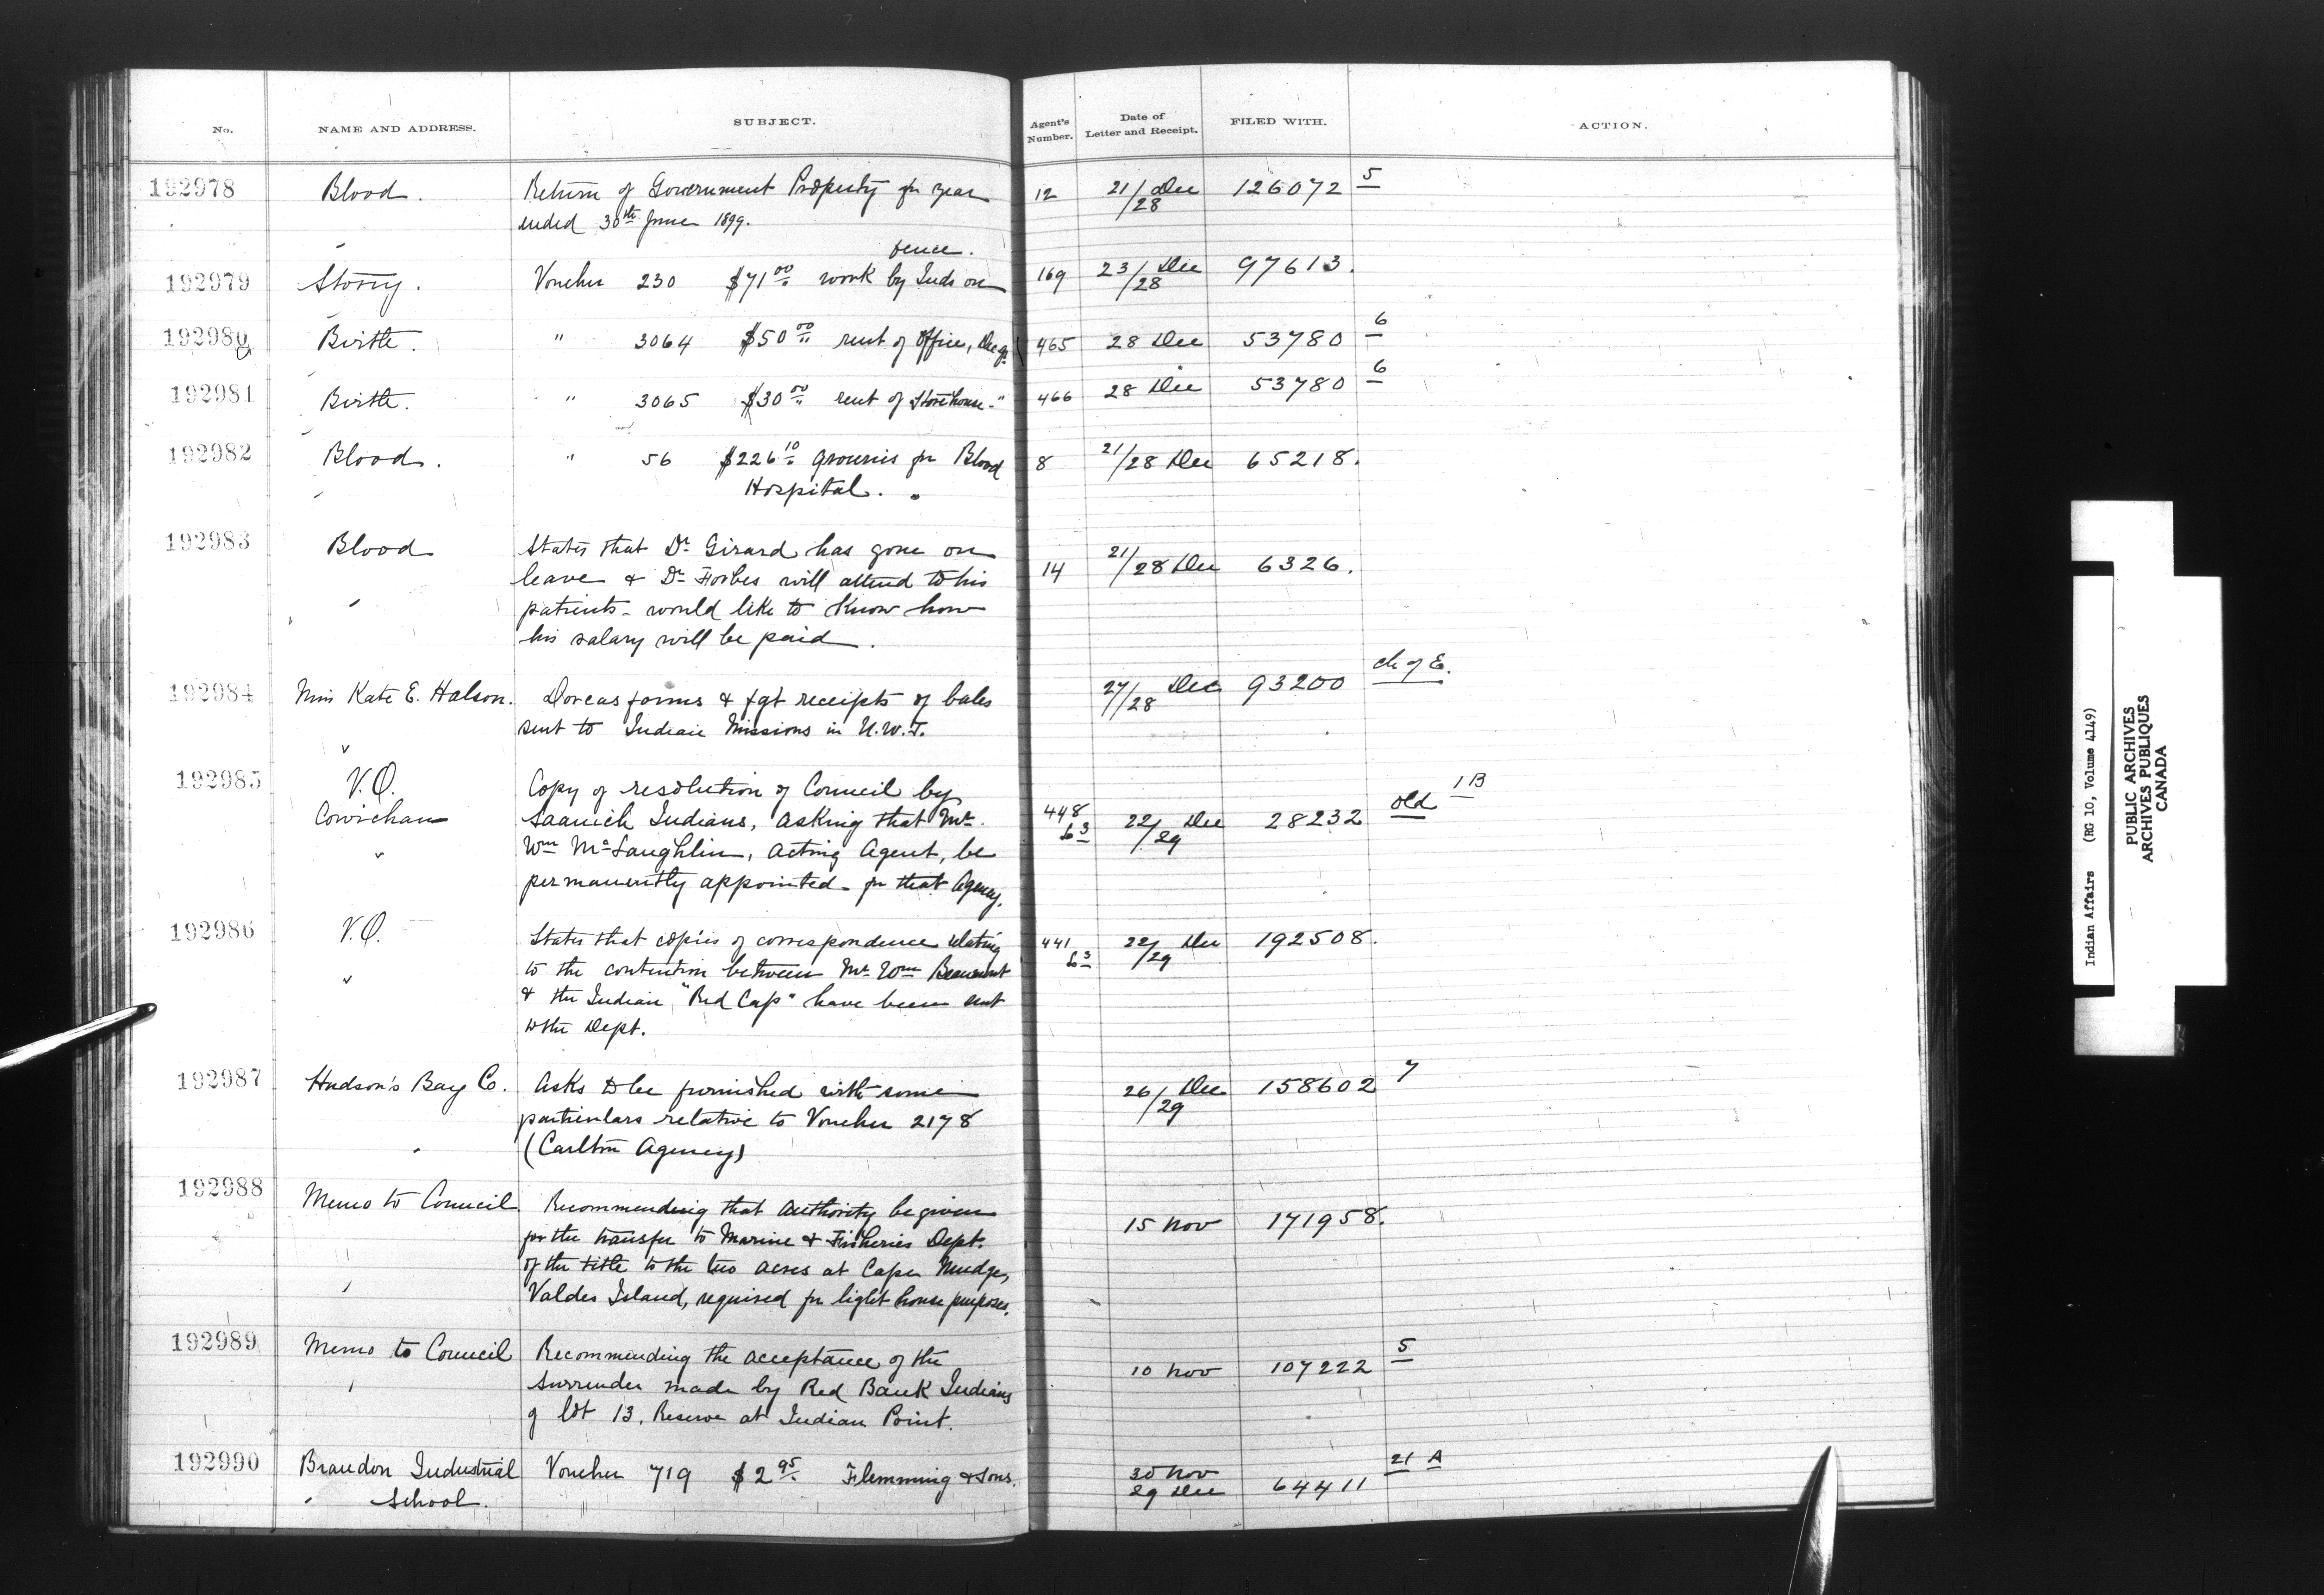 No. NAME AND ADDRESS. SUBJECT. Agent's Number. Date of Letter and Receipt. FILED WITH. ACTION.
192978 Blood. Return of Government Property for year 12 21/28 Dec 126072 5
ended 30th June 1899.
fence.
192979 Stony. Voucher 230 $71 00 work by Inds on 169 23/28 Dec 97613.
192980 Birtle. " 3064 $50 00 rent of Office, 465 28 Dec 53780 6
192981 Birtle. " 3065 $30 00 rent of Storehouse " 466 28 Dec 53780 6
192982 Blood. " 56 $226 10 groceries for Blood 8 21/28 Dec 65218.
Hospital.
192983 Blood States that Dr Girard has gone on
leave & Dr Forbes will attend to his 14 21/28 Dec 6326.
patients - would like to know how
his salary will be paid.
192984 Miss Kate E. Halson. Dorcas forms & fgt receipts of bales 27/28 Dec 93200 ch of E.
sent to Indian Missions in N.W.T.
192985 V.O. Copy of resolution of Council by 1 B
Cowichan Saanich Indians, asking that Mr. 448 L3 22/29 Dec 28232 old
Wm McLaughlin, Acting Agent, be
permanently appointed for that Agency.
192986 V.O. States that copies of correspondence relating 441 L3 22/29 Dec 192508.
to the contention between Mr Wm Beaumont
& the Indian "Red Cap" have been sent
to the Dept.
192987 Hudson's Bay Co. Asks to be furnished with some 26/29 Dec 158602 7
particulars relative to Voucher 2178
(Carlton Agency)
192988 Memo to Council Recommending that authority be given 15 Nov 171958.
for the transfer to Marine & Fisheries Dept.
of the title to the two acres at Cape Mudge,
Valdes Island, required for light house purposes.
192989 Memo to Council Recommending the acceptance of the 10 Nov 107222 5
surrender made by Red Bank Indians
of lot 13, Reserve at Indian Point.
192990 Brandon Industrial Voucher 719 $2 95 Flemming & Sons. 30 Nov 21 A
School. 29 Dec 64411
Indian Affairs (RG 10, Volume 4149)
PUBLIC ARCHIVES
ARCHIVES PUBLIQUES
CANADA